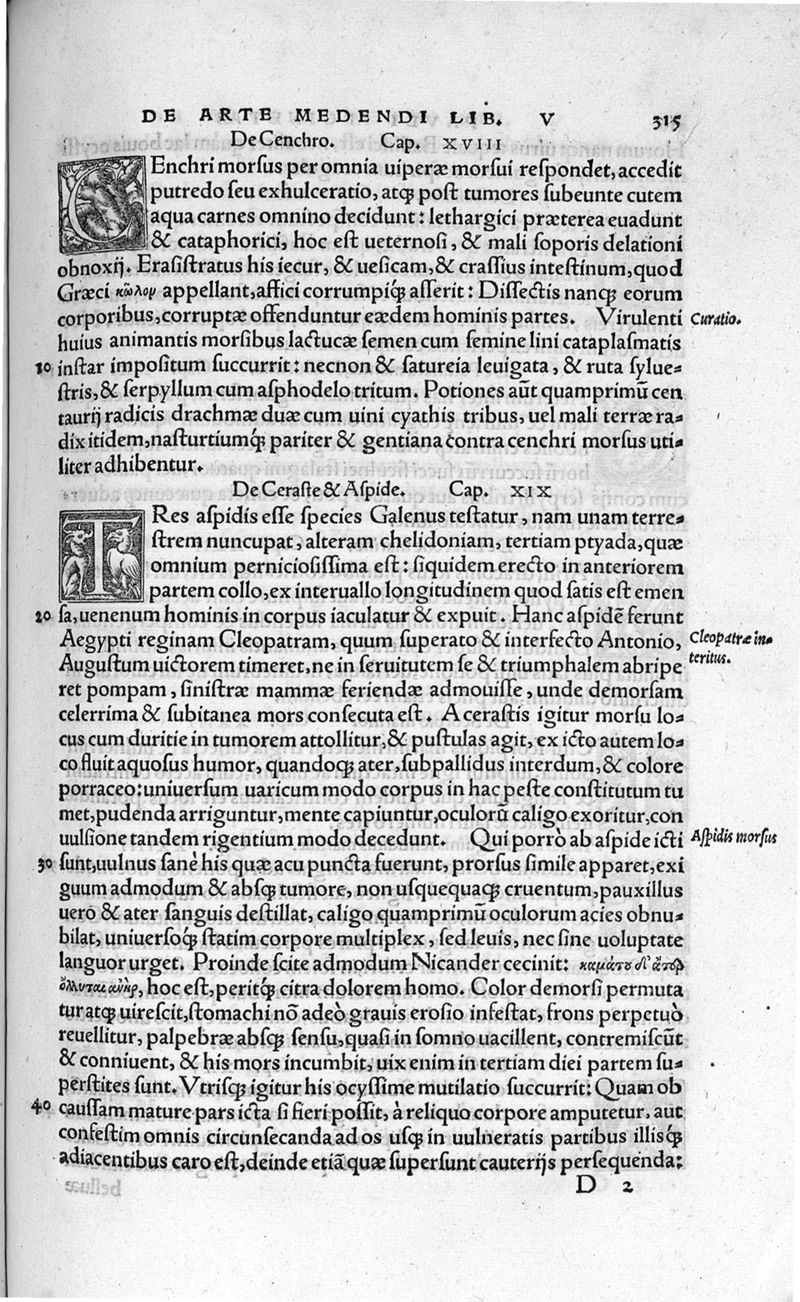 DE ARTE MEDENDI LIB. V 315
De Cenchro. Cap. XVIII
CEnchri morsus per omnia uiperæ morsui respondet, accedit
putredo seu exhulceratio, atq; post tumores subeunte cutem
aqua carnes omnino decidunt: lethargici præterea euadunt
& cataphorici, hoc est ueternosi, & mali soporis delationi
obnoxij. Erasistratus his iecur, & uesicam, & crassius intestinum, quod
Græci κωλον appellant, affici corrumpiq́; asserit: Dissectis nanq; eorum
corporibus, corruptæ offenduntur eædem hominis partes. Virulenti
Curatio.
huius animantis morsibus lactucæ semen cum semine lini cataplasmatis
10 instar impositum succurrit: necnon & satureia leuigata, & ruta sylue-
stris, & serpyllum cum asphodelo tritum. Potiones aũt quamprimũ cen
taurij radicis drachmæ duæ cum uini cyathis tribus, uel mali terræ ra-
dix itidem, nasturtiumq́; pariter & gentiana contra cenchri morsus uti-
liter adhibentur.
De Ceraste & Aspide. Cap. XIX
TRes aspidis esse species Galenus testatur, nam unam terre-
strem nuncupat, alteram chelidoniam, tertiam ptyada, quæ
omnium perniciosissima est: siquidem erecto in anteriorem
partem collo, ex interuallo longitudinem quod satis est emen
20 sa, uenenum hominis in corpus iaculatur & expuit. Hanc aspidẽ ferunt
Aegypti reginam Cleopatram, quum superato & interfecto Antonio,
Cleopatræ in-
teritus.
Augustum uictorem timeret, ne in seruitutem se & triumphalem abripe
ret pompam, sinistræ mammæ feriendæ admouisse, unde demorsam
celerrima & subitanea mors consecuta est. A cerastis igitur morsu lo-
cus cum duritie in tumorem attollitur, & pustulas agit, ex icto autem lo-
co fluit aquosus humor, quandoq; ater, subpallidus interdum, & colore
porraceo: uniuersum uaricum modo corpus in hac peste constitutum tu
met, pudenda arriguntur, mente capiuntur, oculorũ caligo exoritur, con
uulsione tandem rigentium modo decedunt. Qui porrò ab aspide icti
Aspidis morsus
30 sunt, uulnus sanè his quæ acu puncta fuerunt, prorsus simile apparet, exi
guum admodum & absq; tumore, non usquequaq; cruentum, pauxillus
uero & ater sanguis destillat, caligo quamprimũ oculorum acies obnu-
bilat, uniuersoq́; statim corpore multiplex, sed leuis, nec sine uoluptate
languor urget. Proinde scite admodum Nicander cecinit:
hoc est, peritq́; citra dolorem homo. Color demorsi permuta
tur atq; uirescit, stomachi nõ adeò grauis erosio infestat, frons perpetuò
reuellitur, palpebræ absq; sensu, quasi in somno uacillent, contremiscũt
& conniuent, & his mors incumbit, uix enim in tertiam diei partem su-
perstites sunt. Vtrisq; igitur his ocyssime mutilatio succurrit: Quam ob
40 caussam mature pars icta si fieri possit, à reliquo corpore amputetur, aut
confestim omnis circunsecanda ad os usq; in uulneratis partibus illisq́;
adiacentibus caro est, deinde etiã quæ supersunt cauterijs persequenda:
D 2